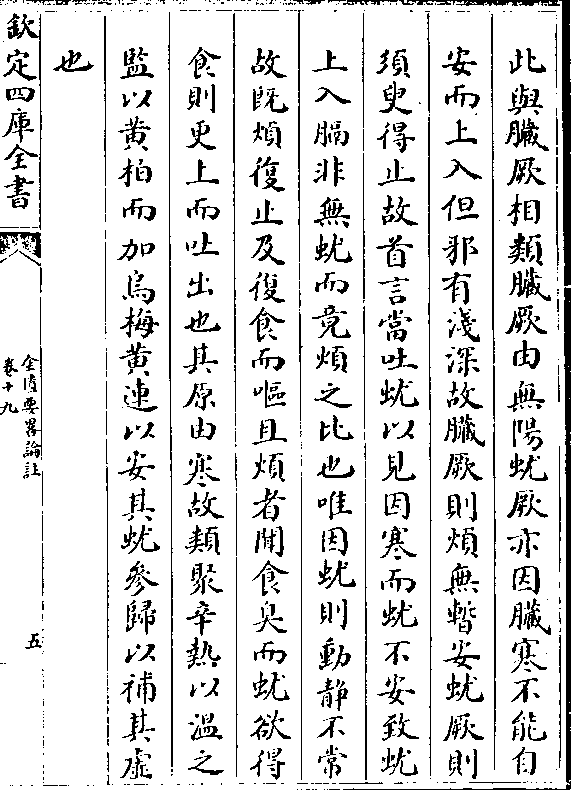 此與臟厥相類臟厥由無陽蚘厥亦因臟寒不能自
安而上入但邪有淺深故臟厥則煩無暫安蚘厥則
須臾得止故首言當吐蚘以見因寒而蚘不安致蚘
上入膈非無蚘而竟煩之比也唯因蚘則動靜不常
故既煩復止及復食而嘔且煩者聞食臭而蚘欲得
食則更上而吐出也其原由寒故類聚辛熱以温之
監以黄柏而加烏梅黄連以安其蚘參歸以補其虛
也
欽定四庫全書
金匱要畧論註
卷十九
五